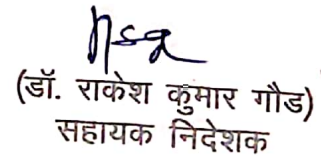 (डॉ. राकेश कुमार गौड)
सहायक निदेशक